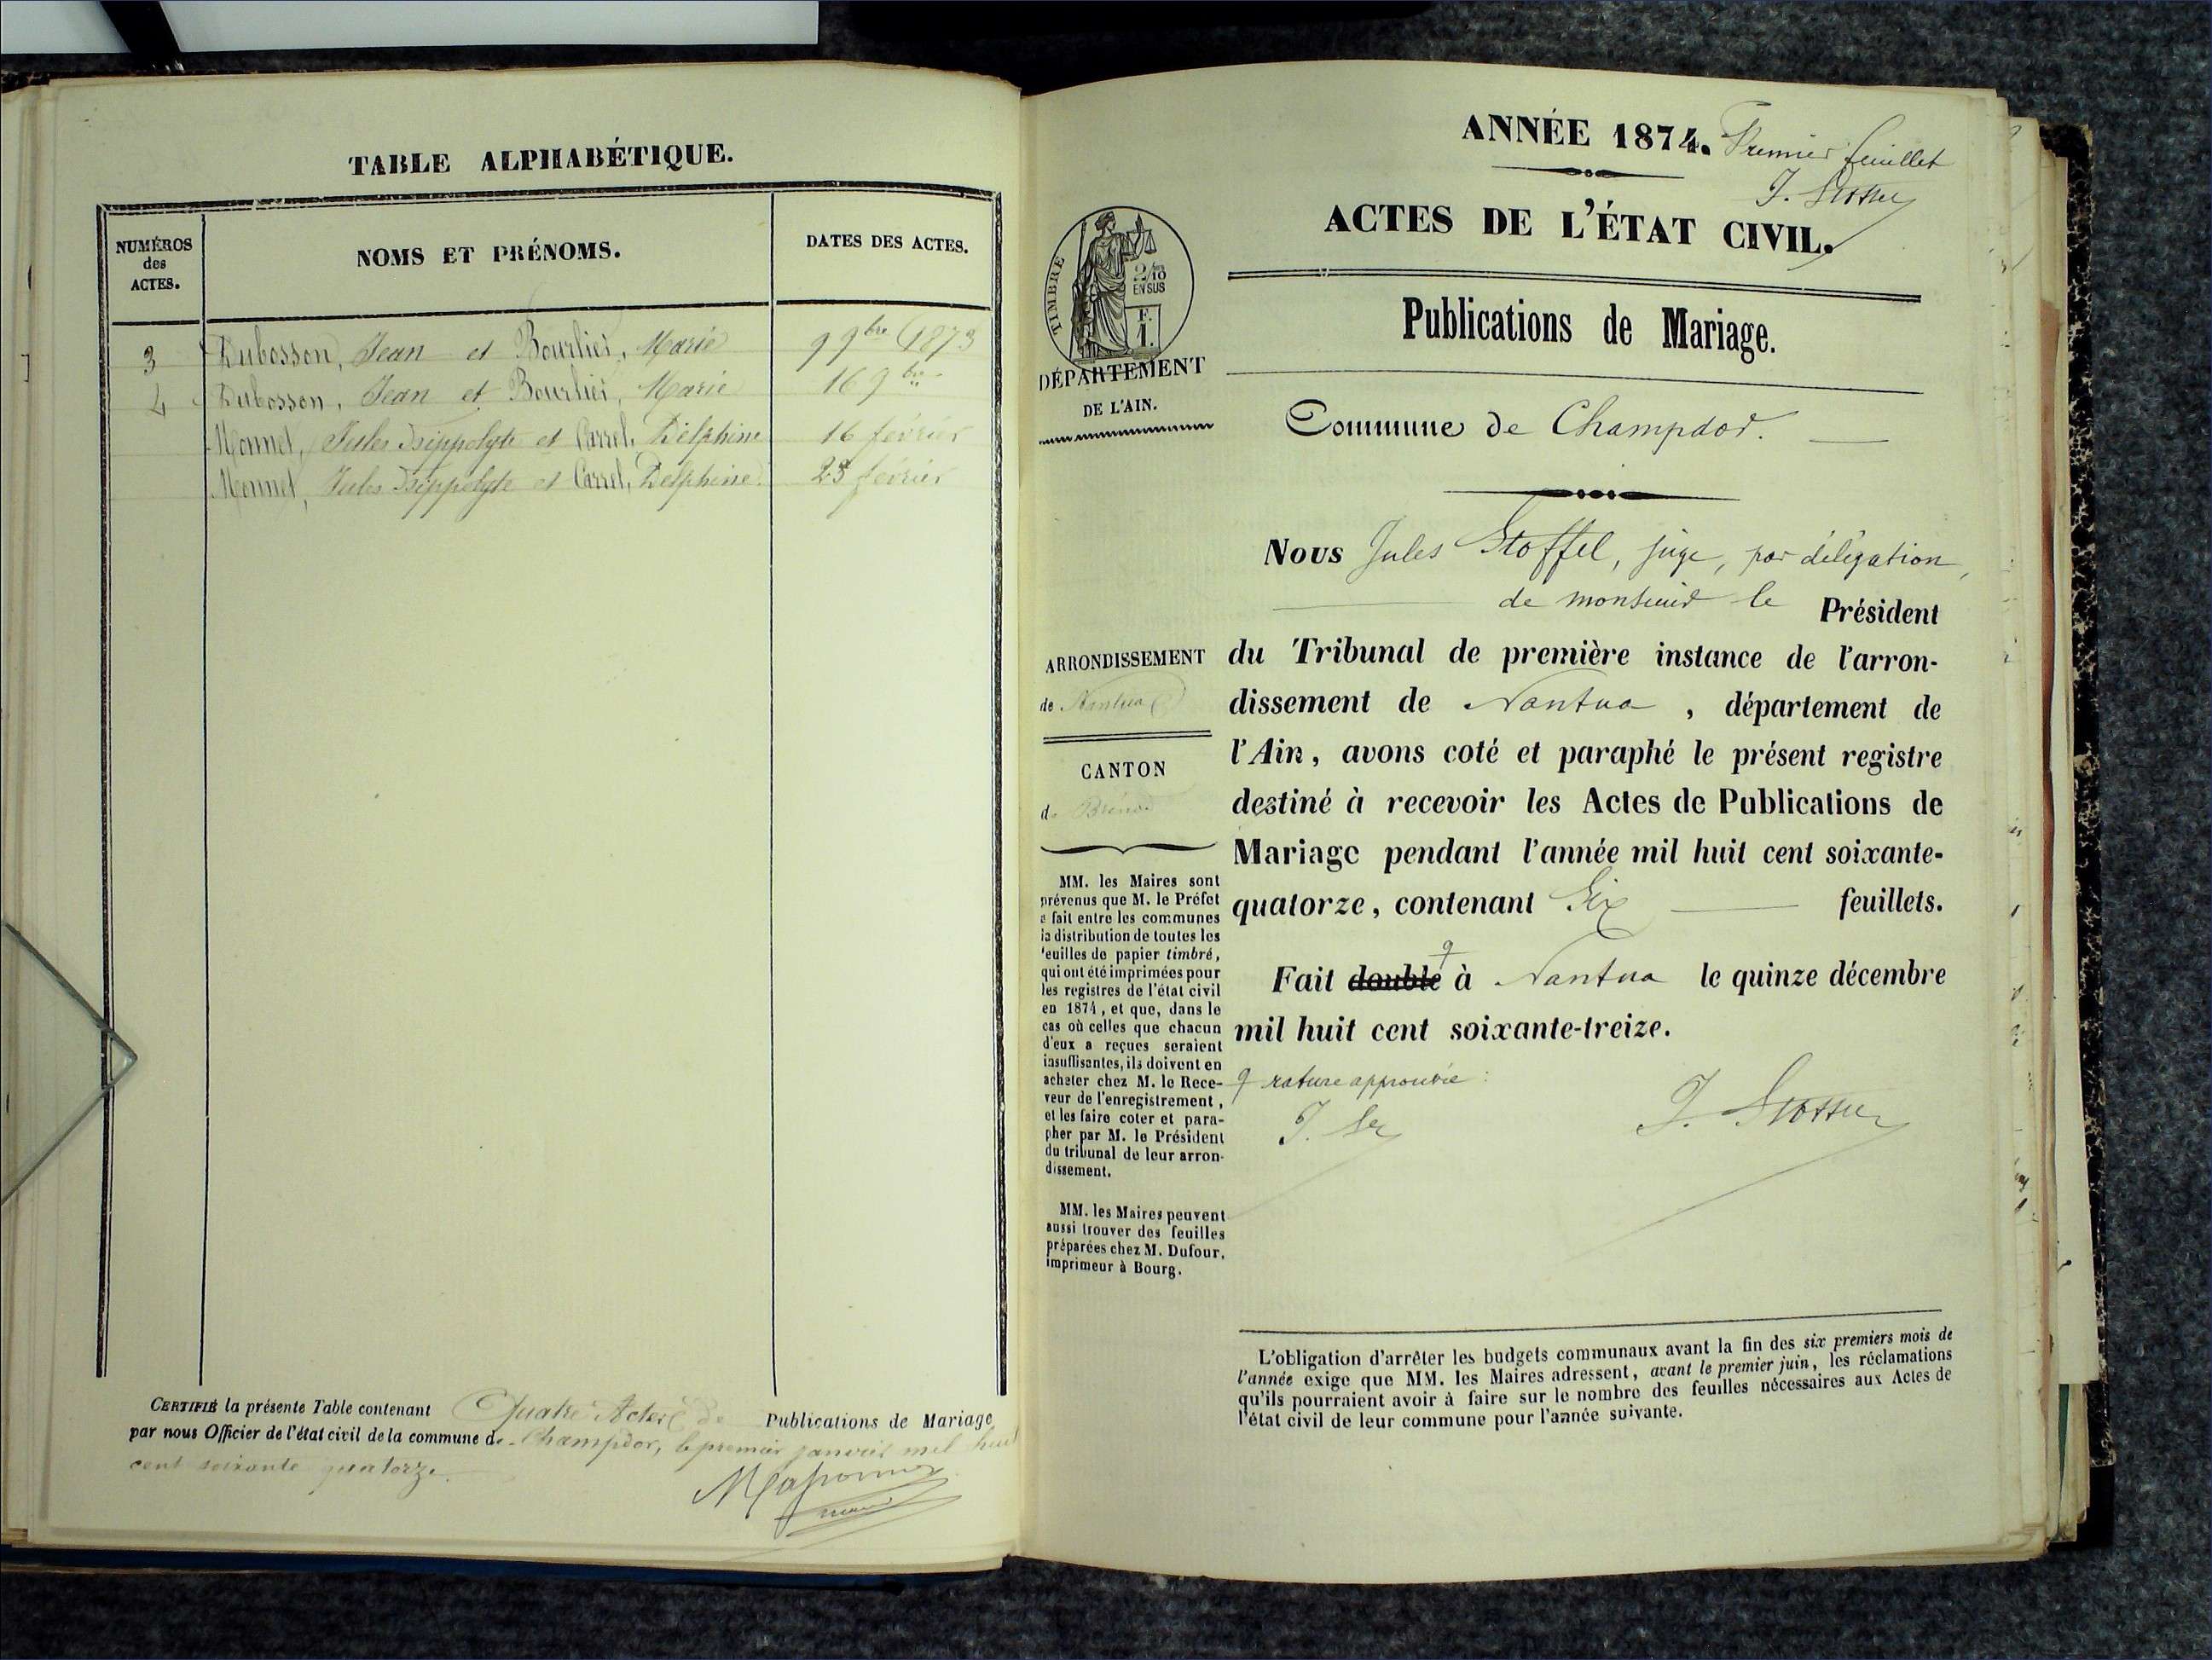 TABLE ALPHABÉTIQUE.
NUMÉROS
des
ACTES.
NOMS ET PRÉNOMS.
DATES DES ACTES.
3 Dubosson, Jean et Bourlier, Marie 9 9bre 1873
4 Dubosson, Jean et Bourlier, Marie 16 9bre
Monnet, Jules Hippolyte et Carrel, Delphine 16 février
Monnet, Jules Hippolyte et Carrel, Delphine 23 février
CERTIFIÉ la présente Table contenant Quatre Actes de Publications de Mariage
par nous Officier de l'état civil de la commune de Champdor, le premier janvier mil huit
cent soixante quatorze.
maire
ANNÉE 1874. Premier feuillet
ACTES DE L'ÉTAT CIVIL.
TIMBRE
2/10
EN SUS
F.
1.
Publications de Mariage.
DÉPARTEMENT
DE L'AIN.
Commune de Champdor.
Nous Jules Stoffel, juge, par délégation,
de monsieur le Président
du Tribunal de première instance de l'arron-
dissement de Nantua, département de
l'Ain, avons coté et paraphé le présent registre
destiné à recevoir les Actes de Publications de
Mariage pendant l'année mil huit cent soixante-
quatorze, contenant Six feuillets.
Fait double à Nantua le quinze décembre
mil huit cent soixante-treize.
rature approuvée :
ARRONDISSEMENT
de Nantua
CANTON
de Brénod
MM. les Maires sont
prévenus que M. le Préfet
a fait entre les communes
la distribution de toutes les
feuilles de papier timbré,
qui ont été imprimées pour
les registres de l'état civil
en 1874, et que, dans le
cas où celles que chacun
d'eux a reçues seraient
insuffisantes, ils doivent en
acheter chez M. le Rece-
veur de l'enregistrement,
et les faire coter et para-
pher par M. le Président
du tribunal de leur arron-
dissement.
MM. les Maires peuvent
aussi trouver des feuilles
préparées chez M. Dufour,
imprimeur à Bourg.
L'obligation d'arrêter les budgets communaux avant la fin des six premiers mois de
l'année exige que MM. les Maires adressent, avant le premier juin, les réclamations
qu'ils pourraient avoir à faire sur le nombre des feuilles nécessaires aux Actes de
l'état civil de leur commune pour l'année suivante.